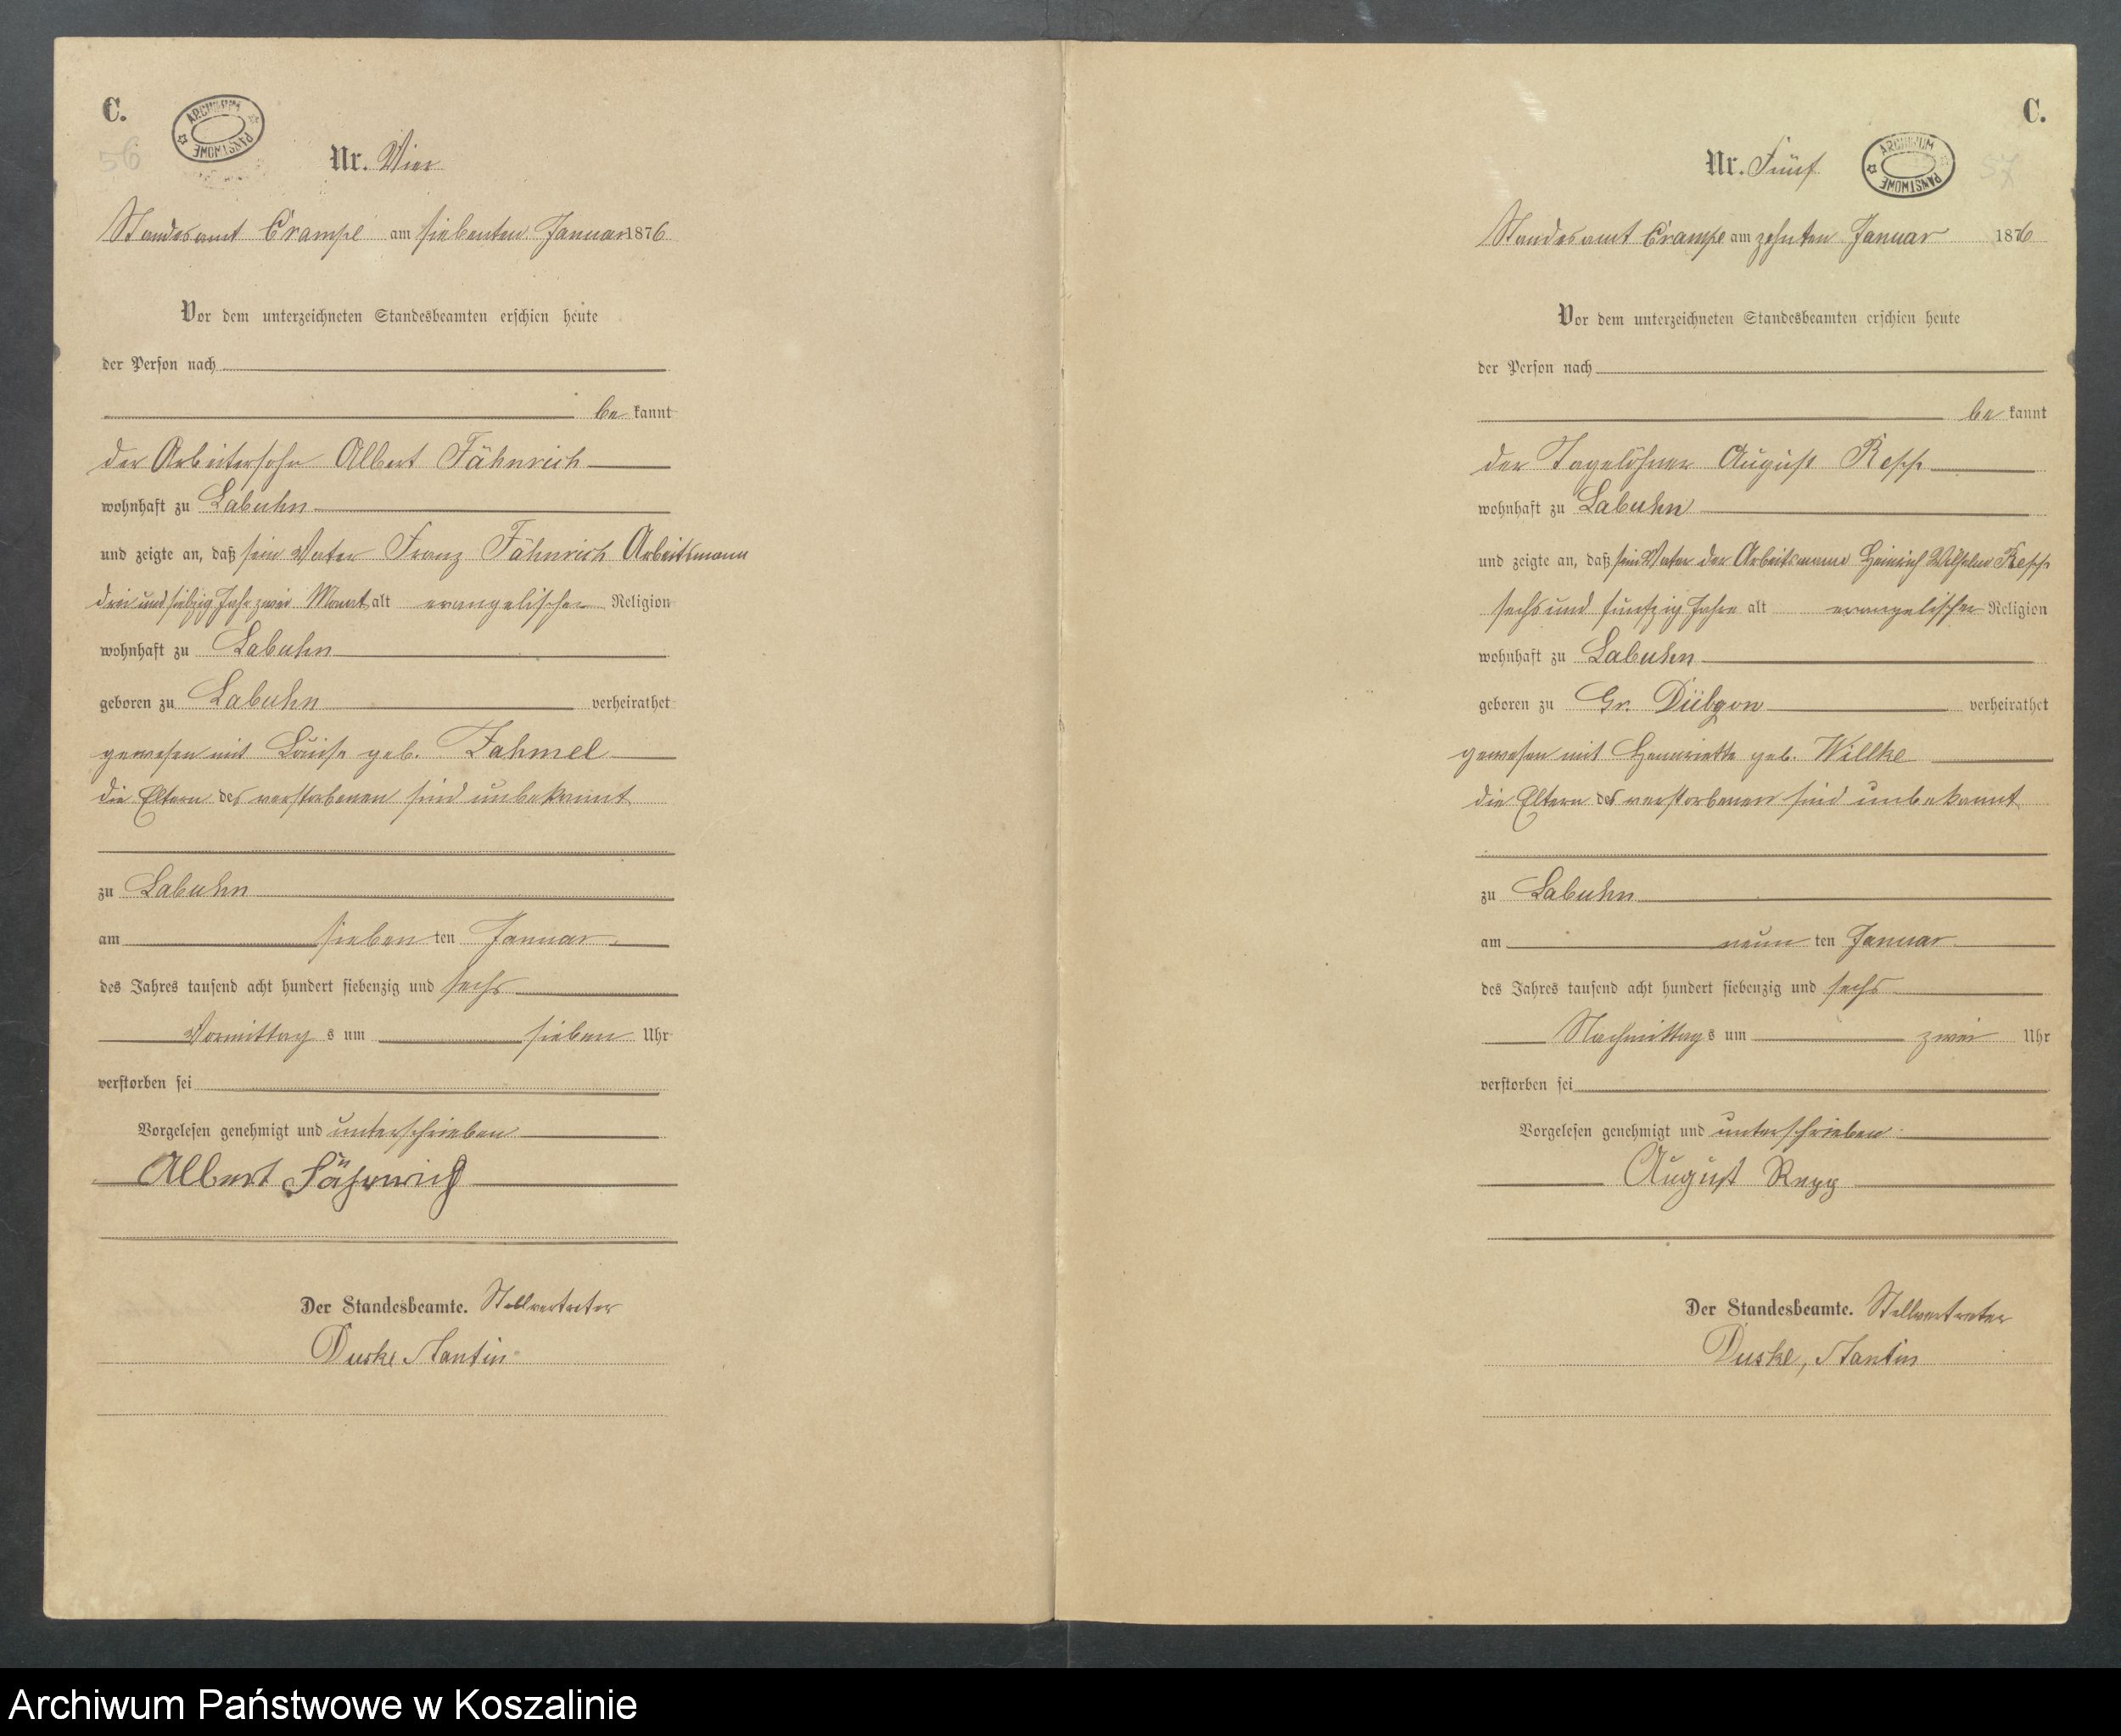 C.
ARCHIWUM PAŃSTWOWE
56
Nr. Vier
Standesamt Crampe am siebenten Januar 1876
Vor dem unterzeichneten Standesbeamten erschien heute
der Person nach
be kannt
der Arbeitersohn Albert Fähnrich
wohnhaft zu Labuhn
und zeigte an, daß sein Vater Franz Fähnrich Arbeitsmann
drei und siebzig Jahr zwei Monat alt evangelischer Religion
wohnhaft zu Labuhn
geboren zu Labuhn verheirathet
gewesen mit Louise geb. Zahmel
die Eltern des verstorbenen sind unbekannt
zu Labuhn
am sieben ten Januar
des Jahres tausend acht hundert siebenzig und sechs
Vormittag s um sieben Uhr
verstorben sei
Vorgelesen genehmigt und unterschrieben
Albert Fähnrich
Der Standesbeamte. Stellvertreter
Duske, Stantin
C.
ARCHIWUM PAŃSTWOWE
57
Nr. Fünf
Standesamt Crampe am zehnten Januar 1876
Vor dem unterzeichneten Standesbeamten erschien heute
der Person nach
be kannt
der Tagelöhner August Repp
wohnhaft zu Labuhn
und zeigte an, daß sein Vater der Arbeitsmann Heinrich Wilhelm Repp
sechs und fünfzig Jahre alt evangelischer Religion
wohnhaft zu Labuhn
geboren zu Gr. Dübzow verheirathet
gewesen mit Henriette geb. Willke
die Eltern des verstorbenen sind unbekannt
zu Labuhn
am neun ten Januar
des Jahres tausend acht hundert siebenzig und sechs
Nachmittag s um zwei Uhr
verstorben sei
Vorgelesen genehmigt und unterschrieben
August Repp
Der Standesbeamte. Stellvertreter
Duske, Stantin
Archiwum Państwowe w Koszalinie